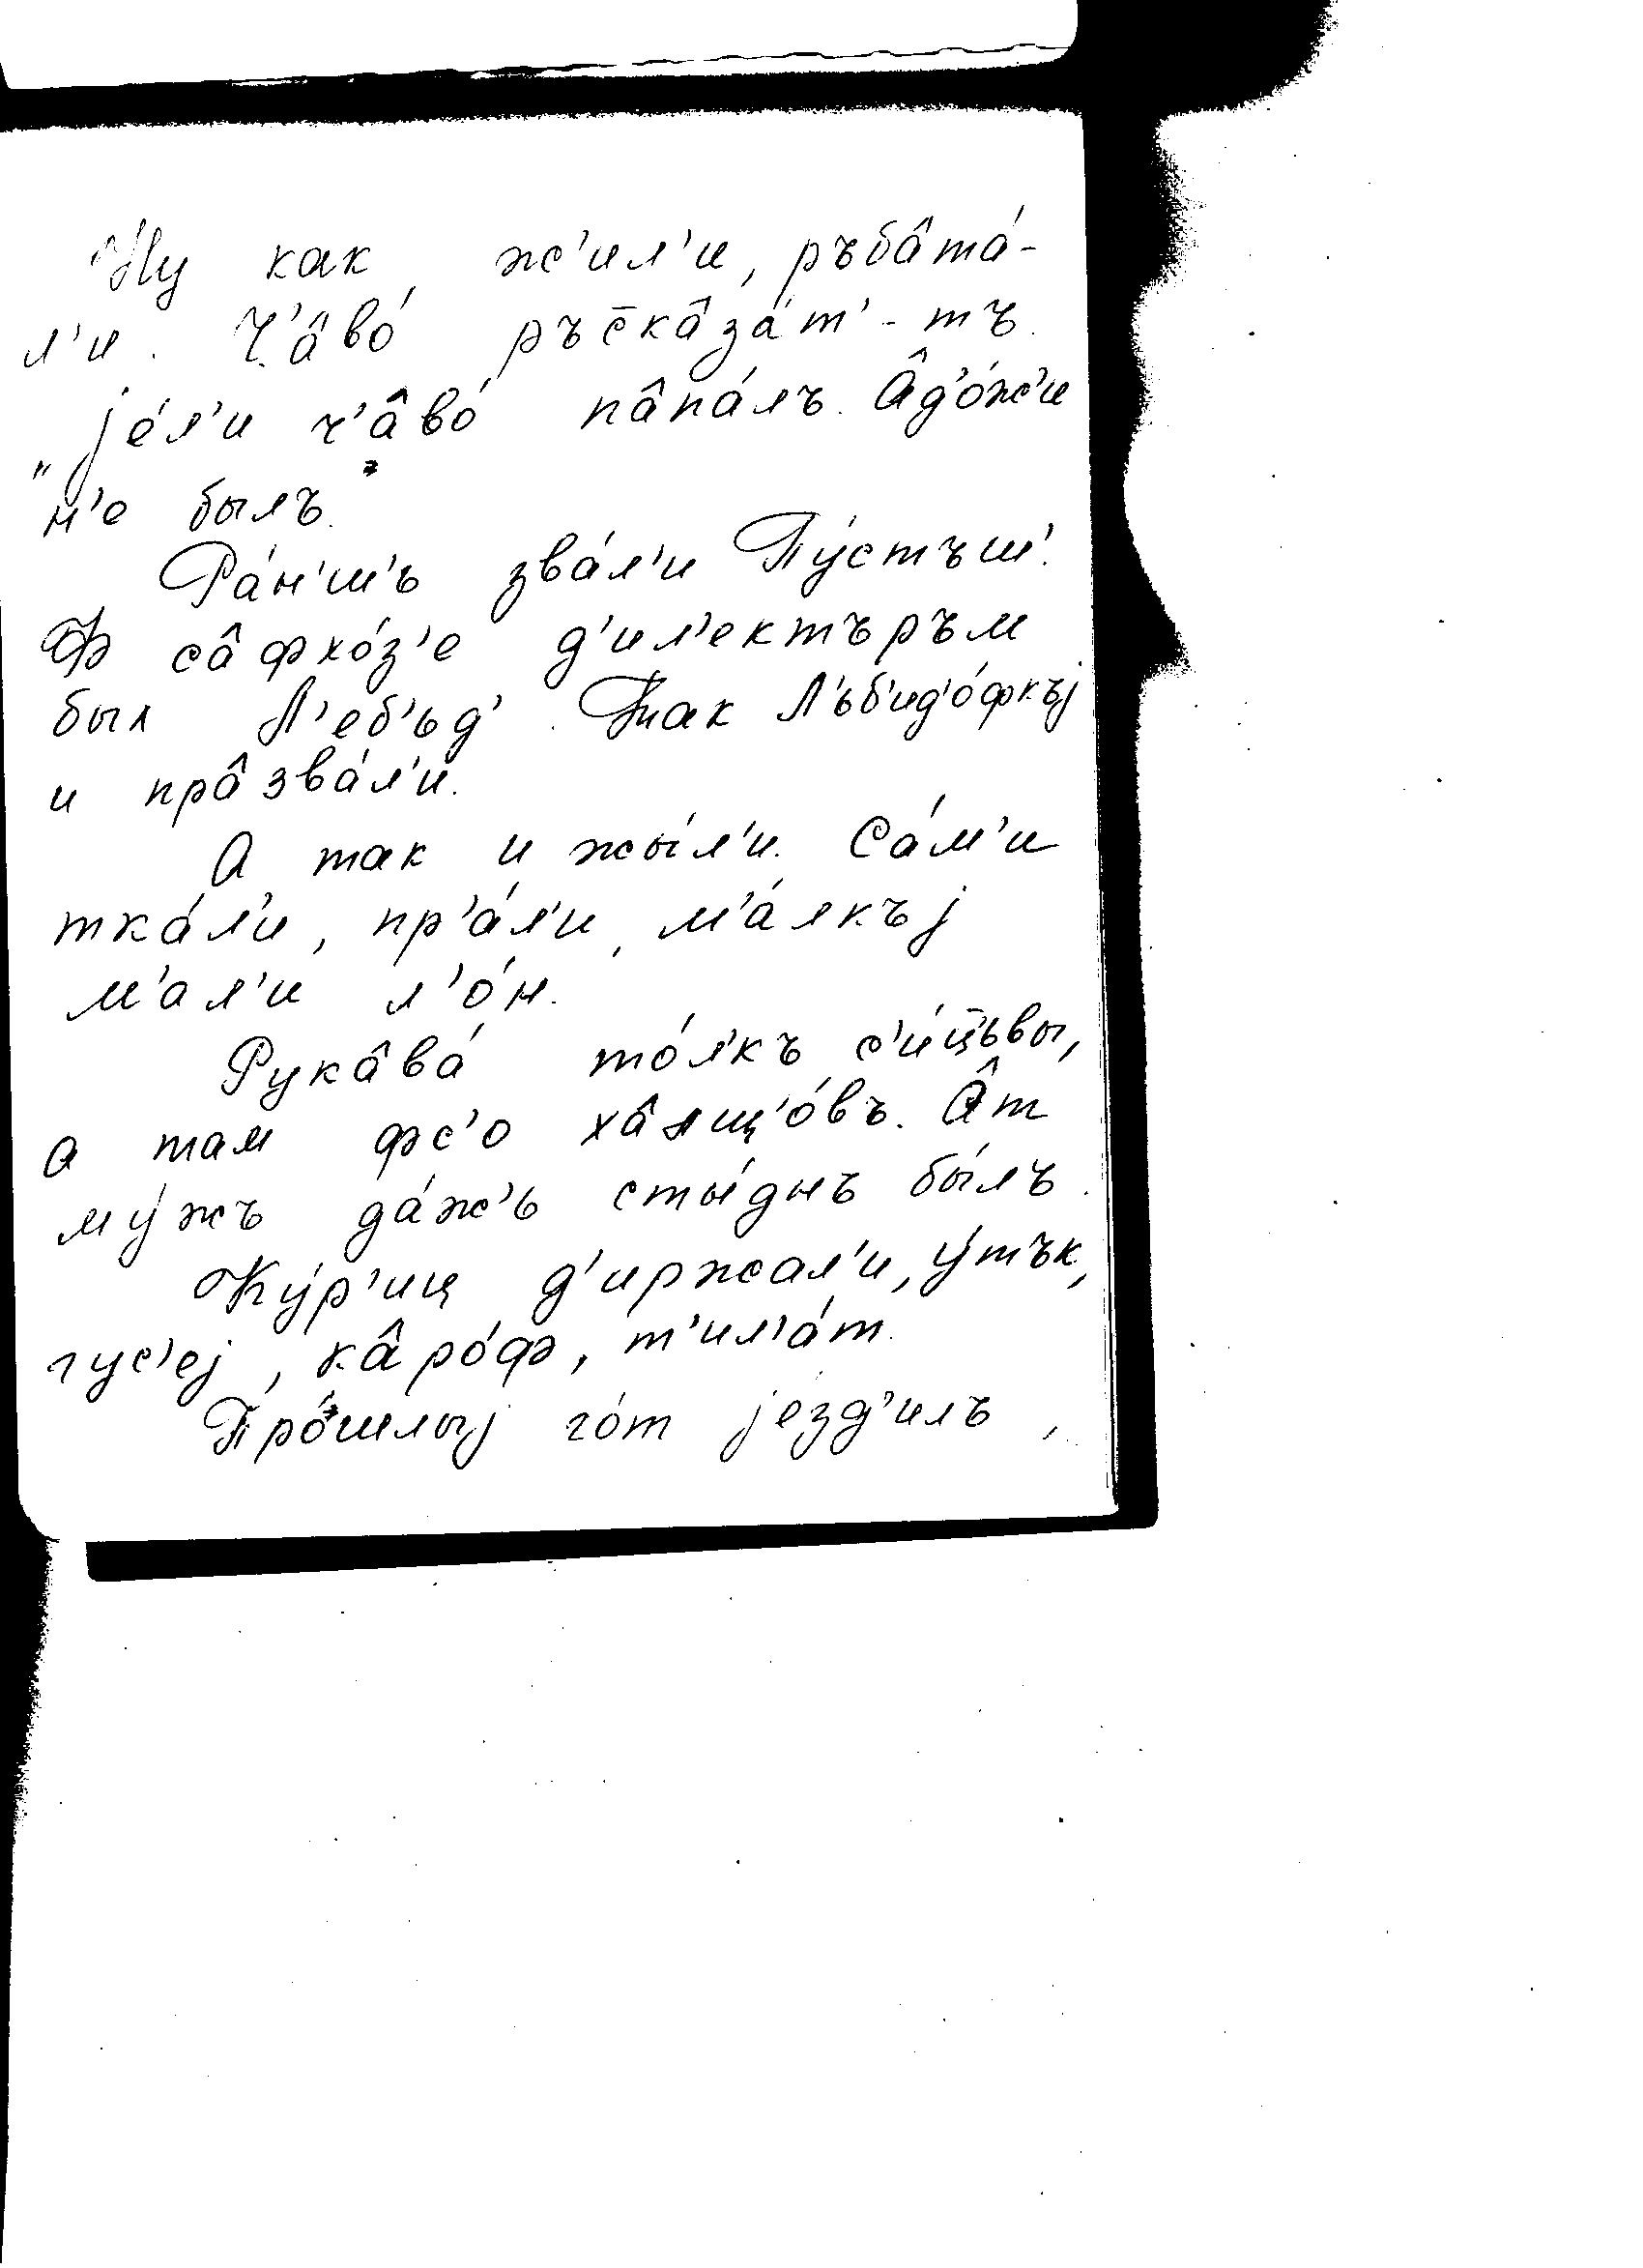 Ну как жс'ил'и, ръба̂та́-
л'и. Ч'а̂во́ ръс̄ка̂за́т'-тъ.
jе́л'и ч'а̂во́ па̂па́лъ. А̂д'о́ж'и
н'е былъ.
Ра́н'ш'ъ зва́л'и Пу́стъш'.
Ф са̂фхо́з'е д'ил'ектъръм
был Л'еб'ьд'. Так Л'ъб'ид'о́фкъj
и пра̂зва́л'и.
А так и жы́л'и. Са́м'и
тка́л'и, пр'а́л'и, м'а́лкъj
м'ал'и л'о́н.
Рука̂ва́ то́л'къ с'и́цьвы,
а там фс'о ха̂лщ'о́въ. А̂т
му́жъ да́ж'ь сты́днъ бы́лъ.
Ку́р'иц д'иржал'и, у́тък,
гус'еj, ка̂ро́ф, т'ил'а́т.
Про́шлыj го́т jе́зд'илъ,